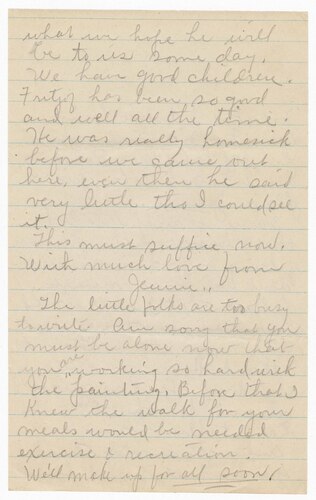 what we hope he will
be to us some day.
We have good children.
Fritjof has been so good
and well all the time.
He was really homesick
before we came out
here, even then he said
very little tho I could see
it.
This must suffice now.
With much love from
Jennie.,
The little folks are too busy
to write. Am sorry that you
must be alone now that
you are working so hard with
the painting. Before that I
knew the walk for your
meals would be needed
exercise & recreation.
We'll make up for all soon!